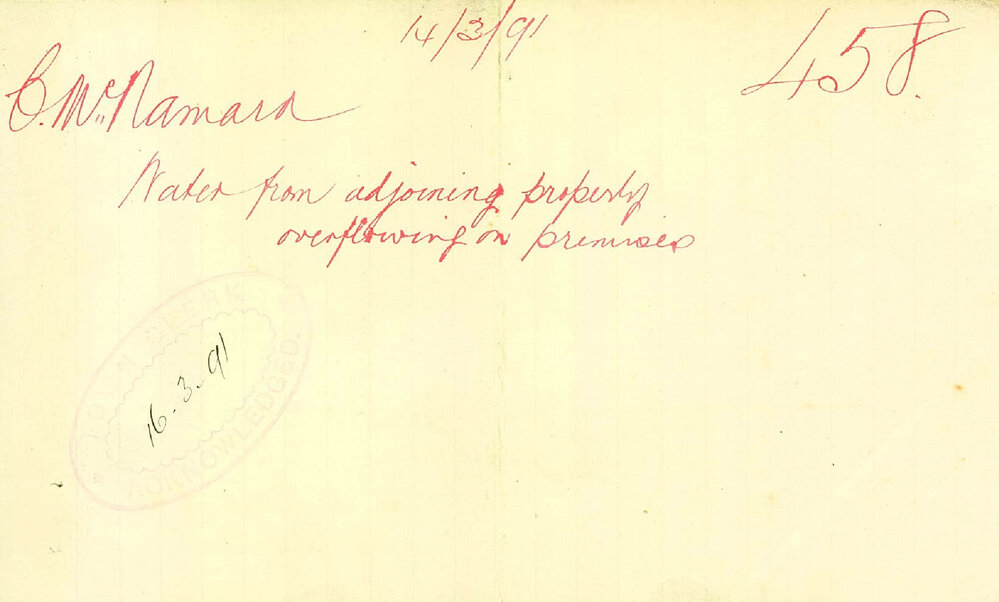 14/3/91
458.
C. McNamara
Water from adjoining property
overflowing on premises
TOWN CLERK
16.3.91
ACKNOWLEDGED.